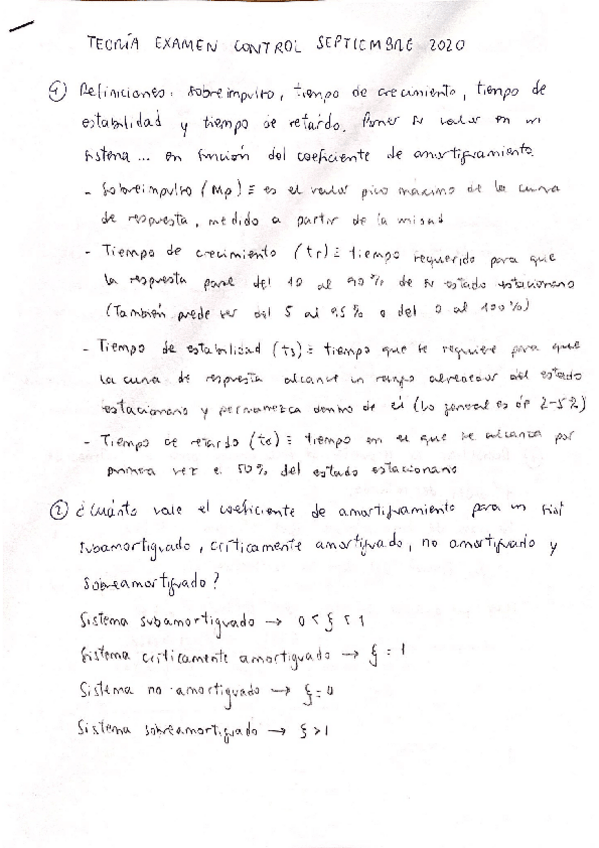 TEORÍA EXAMEN CONTROL SEPTIEMBRE 2020
① Definiciones: sobreimpulso, tiempo de crecimiento, tiempo de
estabilidad y tiempo de retardo. Poner su valor en un
sistema... en función del coeficiente de amortiguamiento.
- Sobreimpulso (Mp) ≡ es el valor pico máximo de la curva
de respuesta, medido a partir de la misma
- Tiempo de crecimiento (tr) ≡ tiempo requerido para que
la respuesta pase del 10 al 90% de su estado estacionario
(También puede ser del 5 al 95% o del 0 al 100%)
- Tiempo de estabilidad (ts) ≡ tiempo que se requiere para que
la curva de respuesta alcance un rango alrededor del estado
estacionario y permanezca dentro de él (lo general es de 2-5%)
- Tiempo de retardo (td) ≡ tiempo en el que se alcanza por
primera vez el 50% del estado estacionario
② ¿Cuánto vale el coeficiente de amortiguamiento para un sist
subamortiguado, críticamente amortiguado, no amortiguado y
sobreamortiguado?
Sistema subamortiguado → 0 < ξ < 1
Sistema críticamente amortiguado → ξ = 1
Sistema no amortiguado → ξ = 0
Sistema sobreamortiguado → ξ > 1